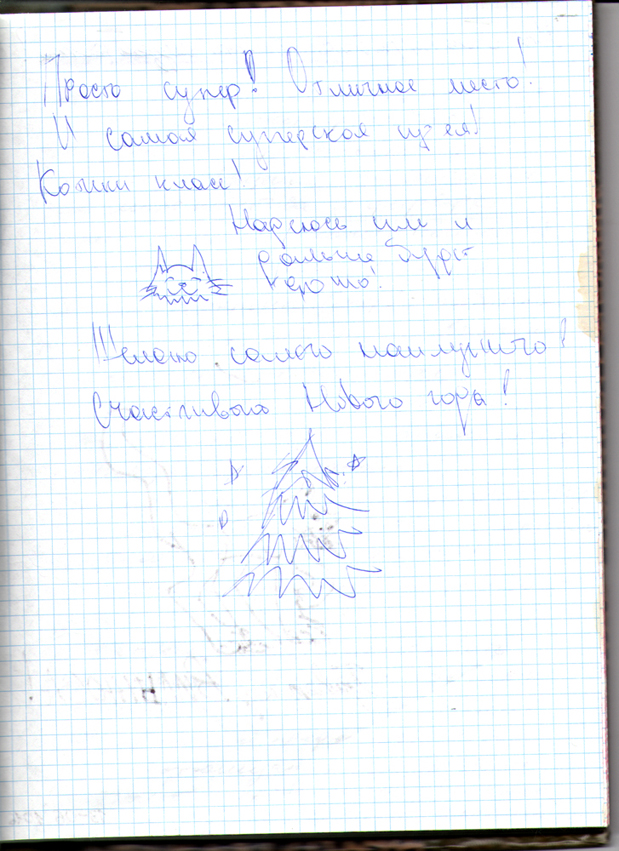 Просто супер! Отличное место!
И самая суперская идея!
Кошки класс!
Надеюсь им и
дальше будет
хорошо!
Желаю самого наилучшего!
Счастливого Нового года!